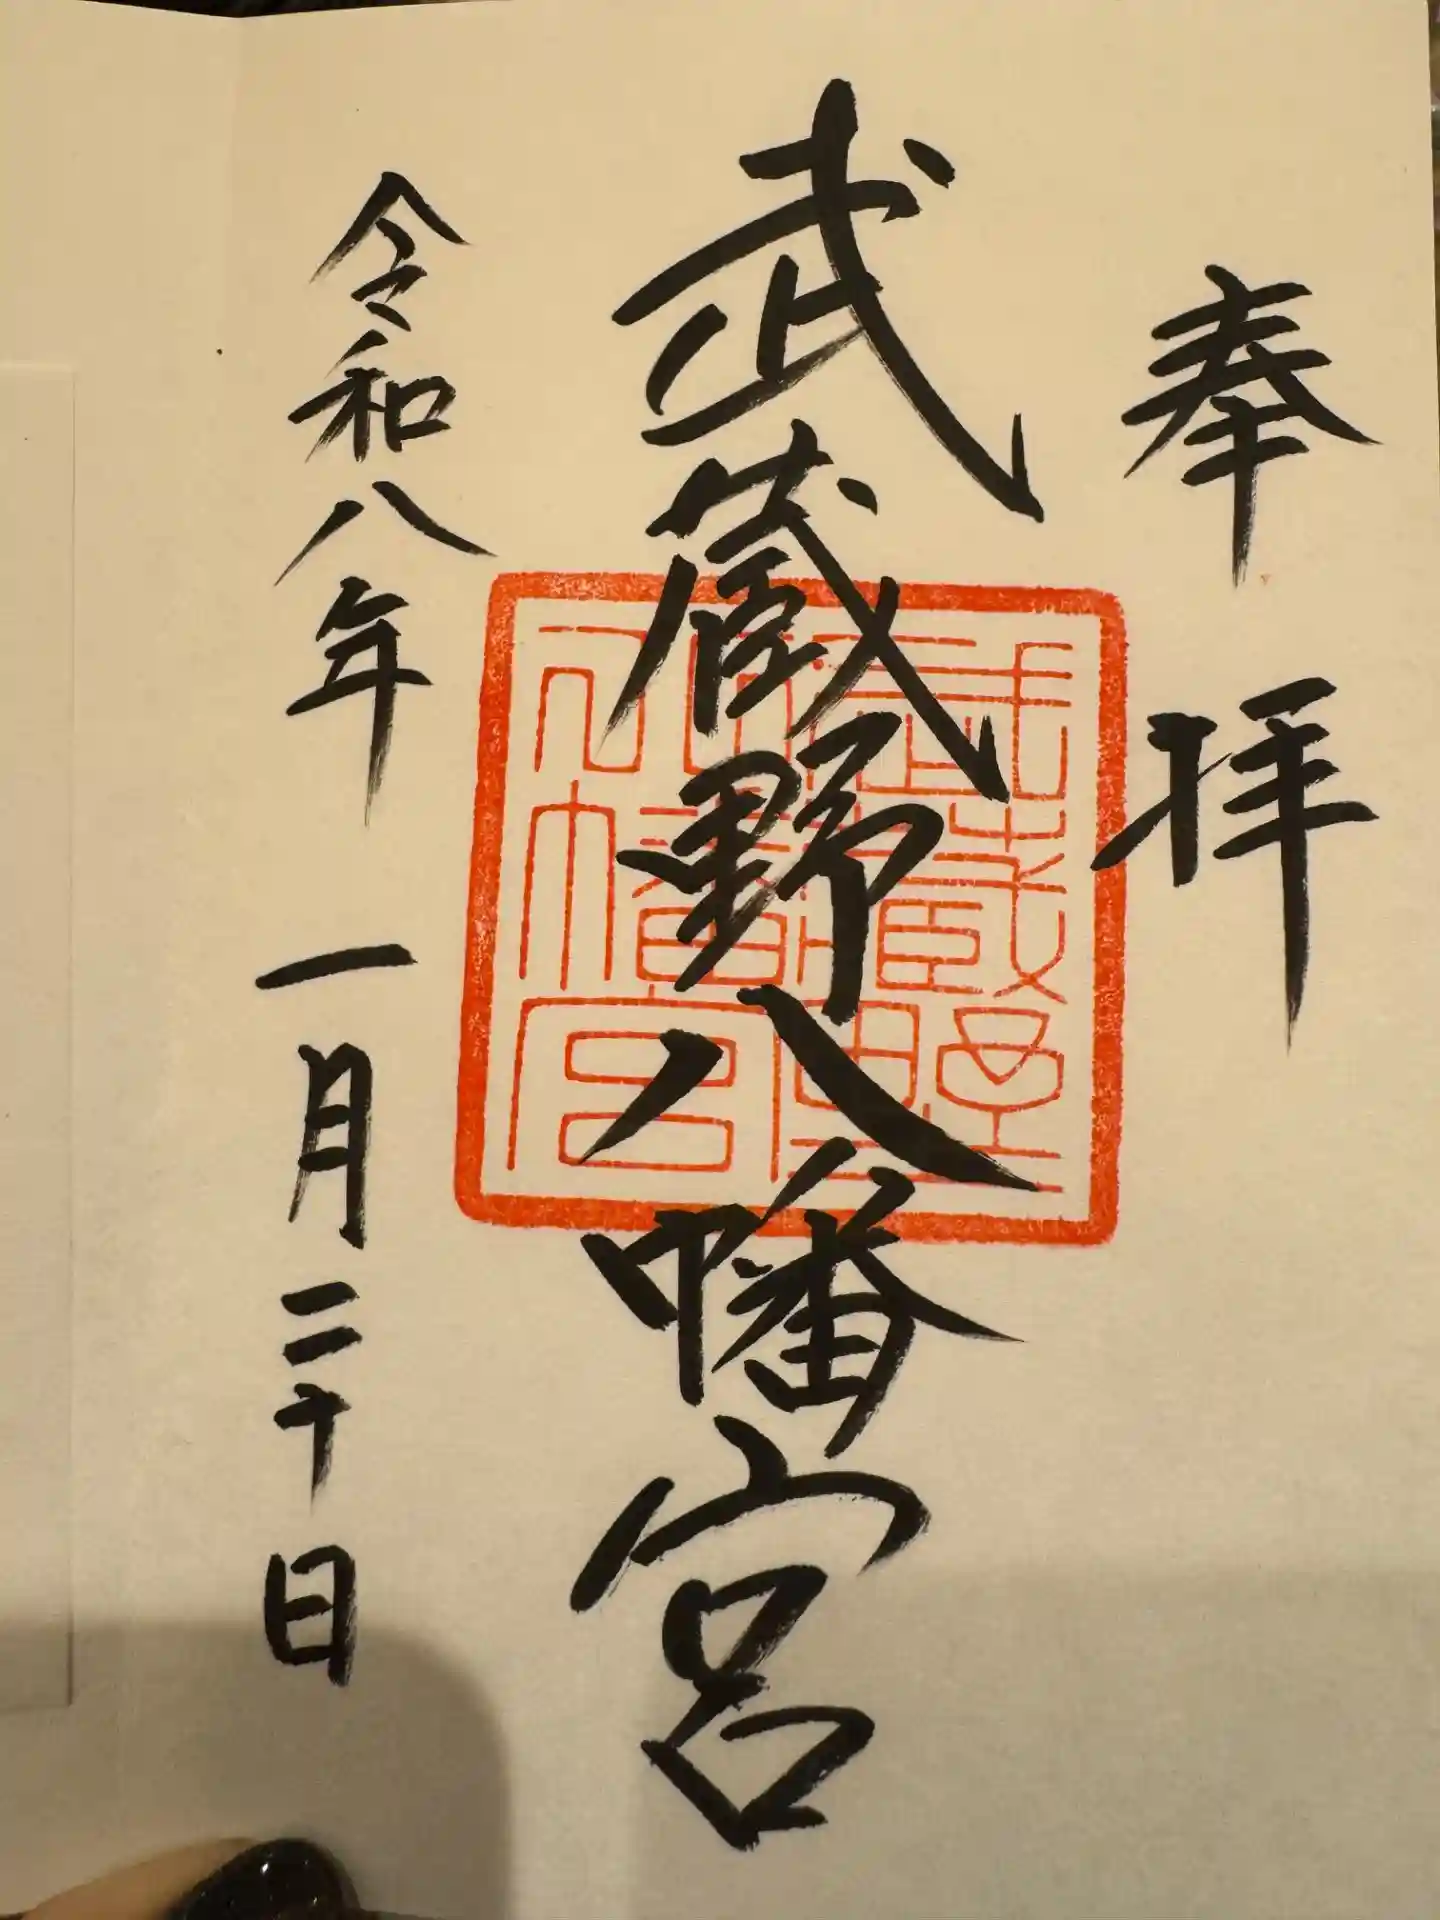 奉拝
武蔵野八幡宮
令和八年一月二十日
武蔵野坐八幡宮